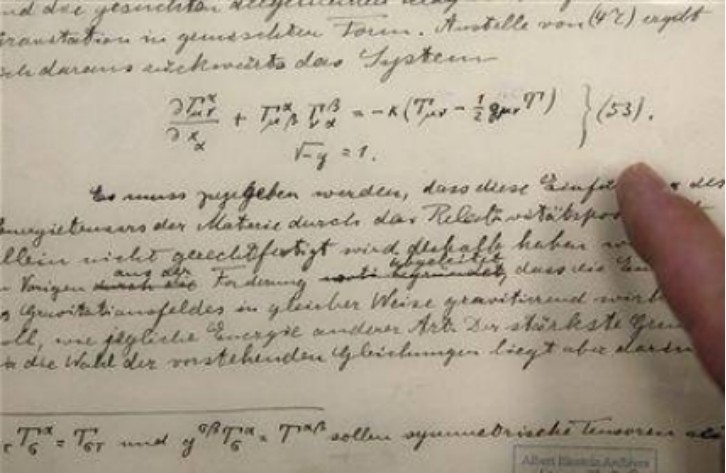 und die gesuchten allgemeinen
Gravitation in gemischter Form. Anstelle von (47) ergibt
sich daraus rückwärts das System
∂Γ^α_μν / ∂x_α + Γ^α_μβ Γ^β_να = −κ(T_μν − ½ g_μν T) } (53).
√−g = 1.
Es muss zugegeben werden, dass diese Einfü
Energietensors der Materie durch das Relativitätspos
allein nicht gerechtfertigt wird; deshalb haben
Vorigen aus der Forderung abgeleitet, dass die En
Gravitationsfeldes in gleicher Weise gravitierend wirk
soll, wie jegliche Energie anderer Art. Der stärkste Grun
die Wahl der vorstehenden Gleichungen liegt aber darin
T^α_σ = T_στ und g^σβ T^α_σ = T^αβ sollen symmetrische Tensoren
Albert Einstein Archives